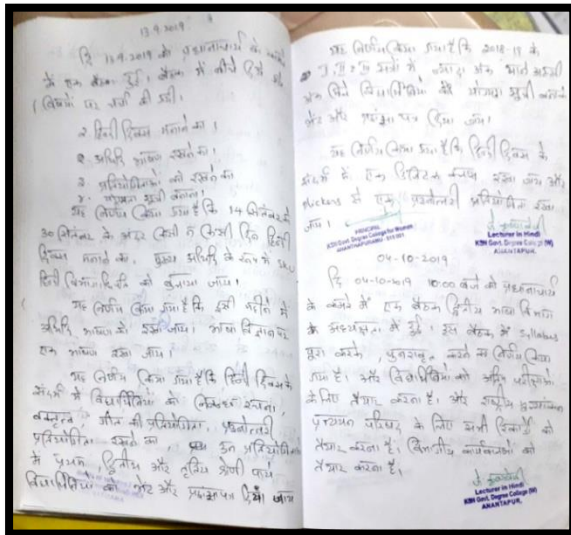 13.9.2019
दि 13.9.2019 को प्रधानाचार्य के
में एक बैठक हुई। बैठक में नीचे दिये गये
विषयों पर चर्चा की गयी।
१. हिन्दी दिवस मनाने का।
२. अतिथि भाषण रखने का।
३. प्रतियोगिताओं को रखने का
४. योग्यता सूची बनाना।
यह निर्णय लिया गया है कि 14 सितंबर से
30 सितंबर के अंदर किसी न किसी दिन हिन्दी
दिवस मनाने का, मुख्य अतिथि के रूप में SKU
हिन्दी को बुलाया जाय।
यह निर्णय लिया गया है कि इसी महीने में
अतिथि भाषण को रखा जाय। भाषा विज्ञान पर
एक भाषण रखा जाय।
यह निर्णय लिया गया है कि हिन्दी दिवस के
संदर्भ में विद्यार्थिनियों को रचना,
वक्तृत्व, गीत की प्रतियोगिता, प्रश्नोत्तरी
प्रतियोगिता रखने का, उन प्रतियोगिताओं
में प्रथम, द्वितीय और तृतीय श्रेणी पाये
विद्यार्थिनियों को भेंट और प्रशंसा पत्र दिया जाय
यह निर्णय किया गया है कि 2018-19 के
I, II & III वर्षों में ज्यादा अंक और अच्छी
अंक लिये विद्यार्थिनियों की योग्यता सूची बनाके
भेंट और प्रशंसा पत्र दिया जाय।
यह निर्णय लिया गया है कि हिन्दी दिवस के
संदर्भ में एक डिजिटल क्लास रखा जाय और
plickers से एक प्रश्नोत्तरी प्रतियोगिता रखा
जाय।
PRINCIPAL
KSN Govt. Degree College for Women
ANANTHAPURAMU - 515 001
Lecturer in Hindi
KSN Govt. Degree College (W)
ANANTAPUR.
04-10-2019
दि 04-10-2019 10.00 बजे को प्रधानाचार्य
के कमरे में एक बैठक द्वितीय भाषा विभाग
के अध्यक्षता में हुई। इस बैठक में syllabus
पूरा करके, पुनरावृत्त करने का निर्णय लिया
गया है। और विद्यार्थिनियों को अंतिम परीक्षाओं
के लिए तैयार करना है। और राष्ट्रीय मूल्यांकन
प्रत्यायन परिषद के लिए सभी रिकार्डों को
तैयार करना है। विभागीय कार्यकलापों को
तैयार करना है।
Lecturer in Hindi
KSN Govt. Degree College (W)
ANANTAPUR.